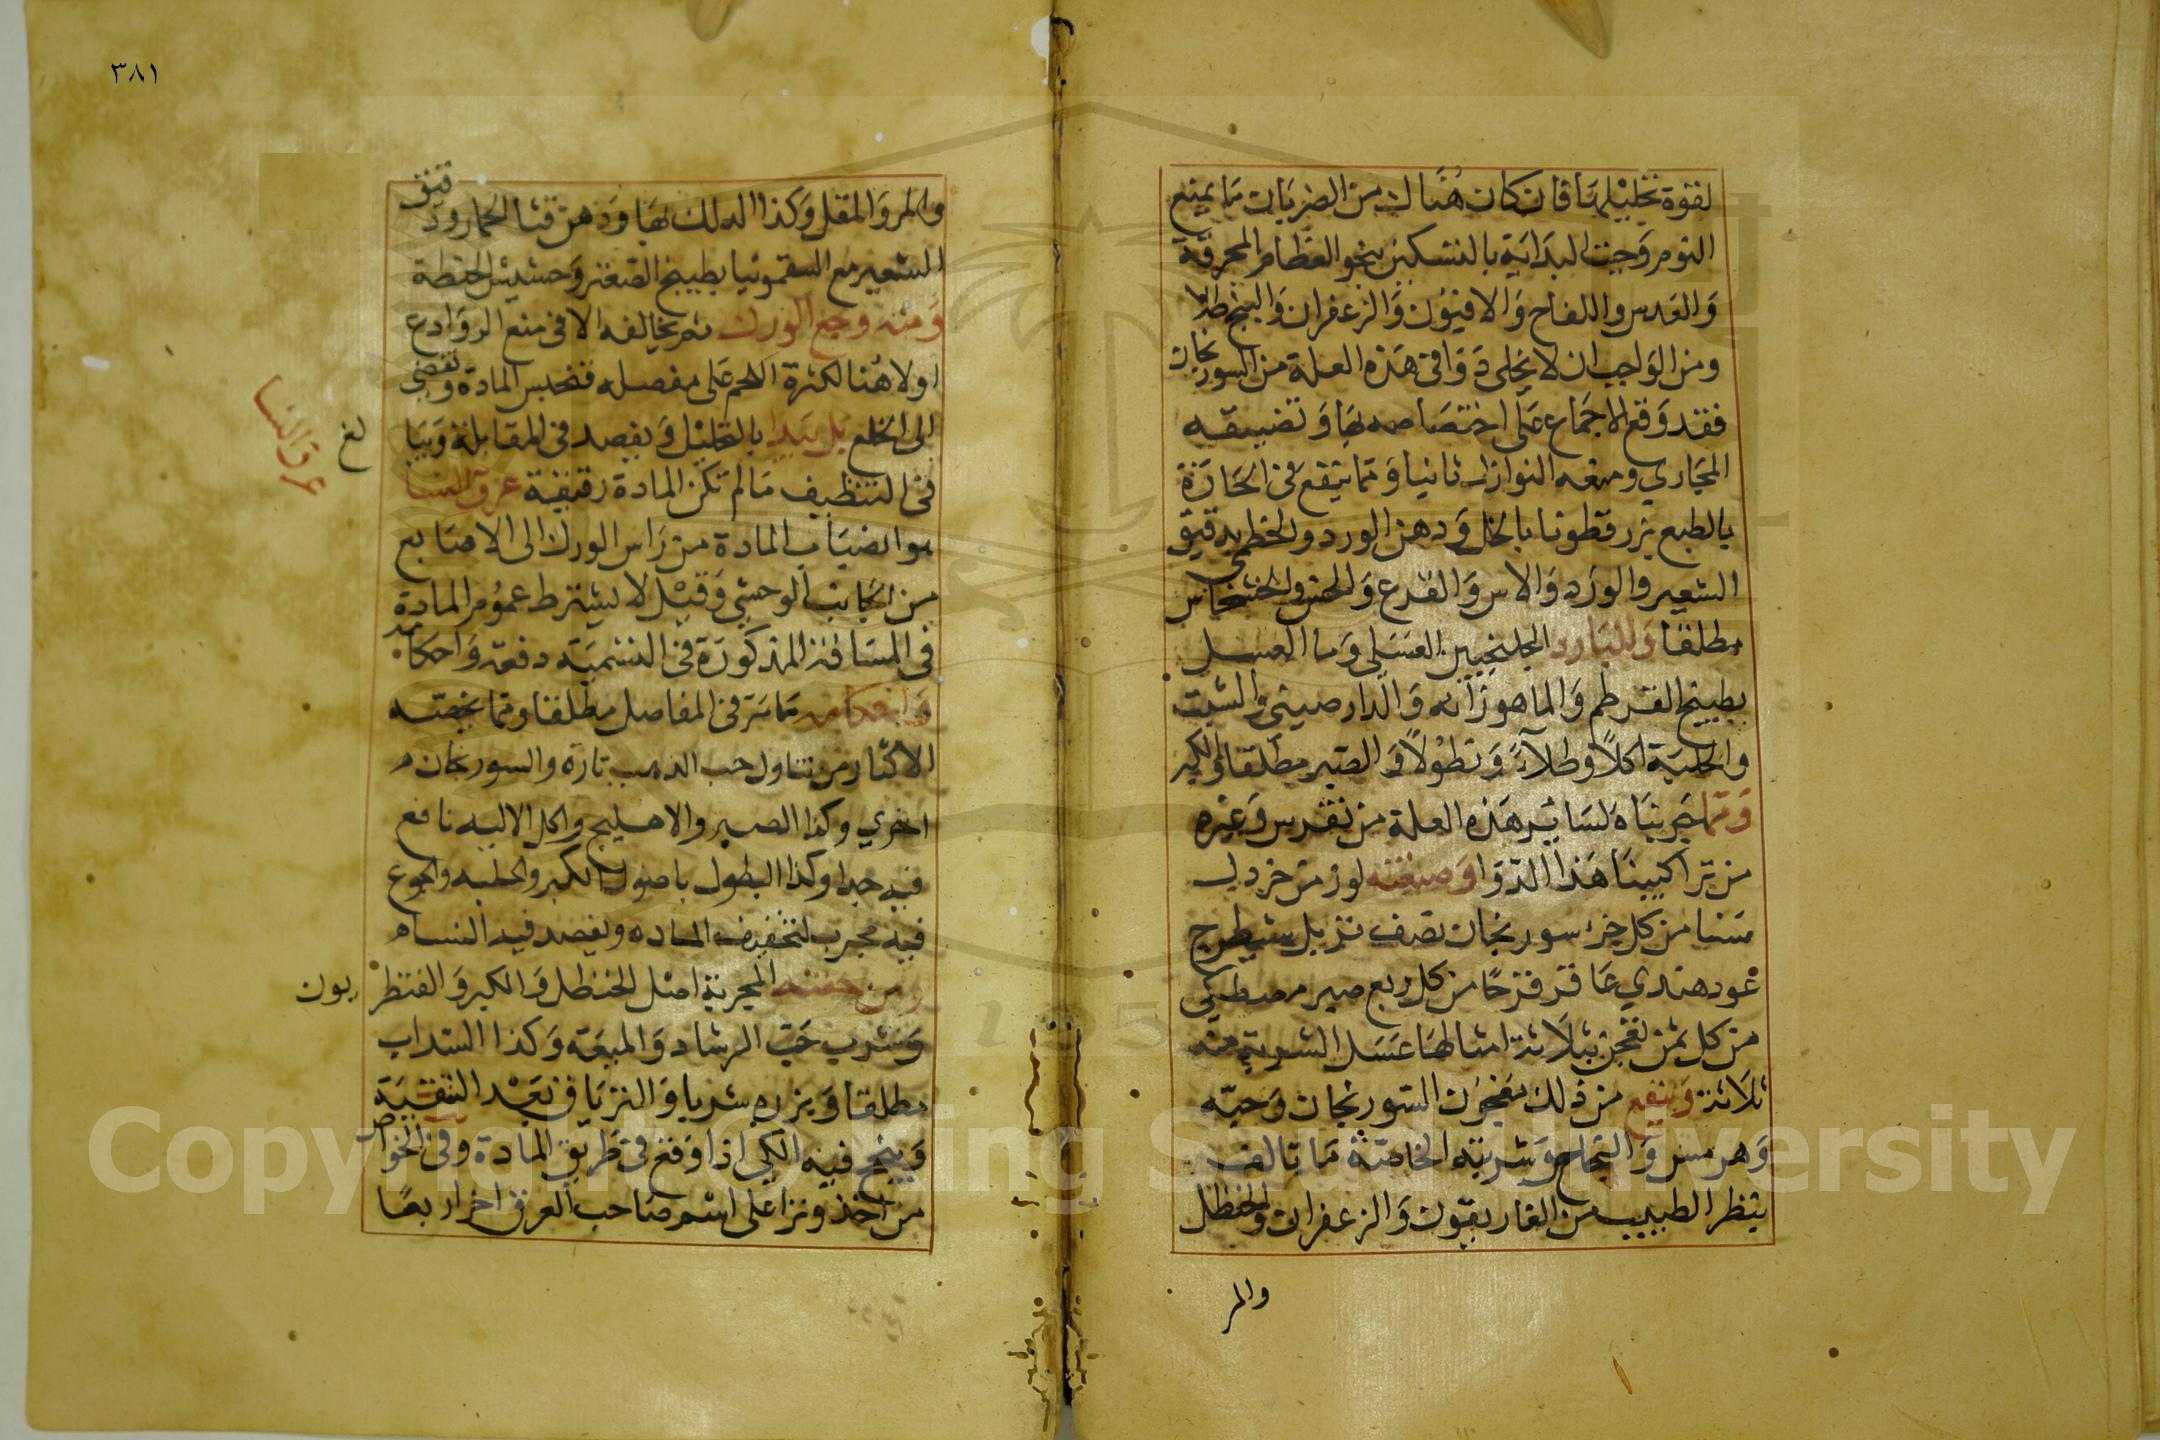 لقوة تحليلها فان كان هناك من الضربان ما يمنع
النوم وجبت البداية بالتسكين بنحو العظام المحرقة
والعدس واللفاح والافيون والزعفران والبنج طلا
ومن الواجب ان لا يخلى دوا في هذه العلة من السورنجان
فقد وقع الاجماع على اختصاصه بها وتضييقه
المجاري ومنعه النوازل ثانيا ومما ينفع في الحارة
بالطبع بزر قطونا بالخل ودهن الورد والخطمي بدقيق
الشعير والورد والاس والقرع والخس والخشخاش
مطلقا وللبارد الجلنجبين العسلي وما العسل
بطبيخ القرطم والماهوزانه والدارصيني والشبت
والحلبة اكلا وطلاء ونطولا والصبر مطلقا والكبر
ومما جربناه لساير هذه العلة من نقرس وغيره
من تراكيبنا هذا الدوا وصنعته لوز مر خردل
سنا من كل جزء سورنجان نصف تربل شيطرج
عود هندي عاقرقرحا من كل ربع صبر مصطكي
من كل ثمن تعجن بثلاثة امثالها عسل الشربة منه
ثلاثة وينفع من ذلك معجون السورنجان وحبه
وهرمس والنجاح وشربته الخاصة ما تالف
بنظر الطبيب من الغاريقون والزعفران والحنظل
والمر
٣٨١
والمر والمقل وكذا الدلك بها ودهن قثا الحمار ودقيق
الشعير مع السقمونيا بطبيخ الصعتر وحشيش الحنطة
ومنه وجع الورك نمر يخالفه الا في منع الروادع
اولا هنا لكثرة اللحم على مفصله فتحبس المادة وتفضي
الى الخلع بل يبدا بالتحليل ويفصد في المقابلة ويبا
لغ
في التنظيف ما لم تكن المادة رقيقة عرق النسا
عرق النسا
هو انصباب المادة من راس الورك الى الاصابع
من الجانب الوحشي وقيل لا يشترط عموم المادة
في المسافة المذكورة في التسمية دفعة واحكامه
واحكامه ما مر في المفاصل مطلقا ومما يخصه
الاكثار من تناول حب الذهب تارة والسورنجان
اخرى وكذا الصبر والاهليلج واكل الاليه نافع
فيه جدا وكذا النطول باصول الكبر والحلبه والجوع
فيه مجرب لتخفيف الماده ويفصد فيه النسا
ومن حقنه المجربة اصل الحنظل والكبر والقنطر
يون
وشرب حب الرشاد والميعة وكذا السداب
مطلقا وبزره شربا والترياق بعد التنقية
وينجح فيه الكي اذا وقع في طريق المادة وفي الخواص
من اخذ وترا على اسم صاحب العرق اخر اربعا